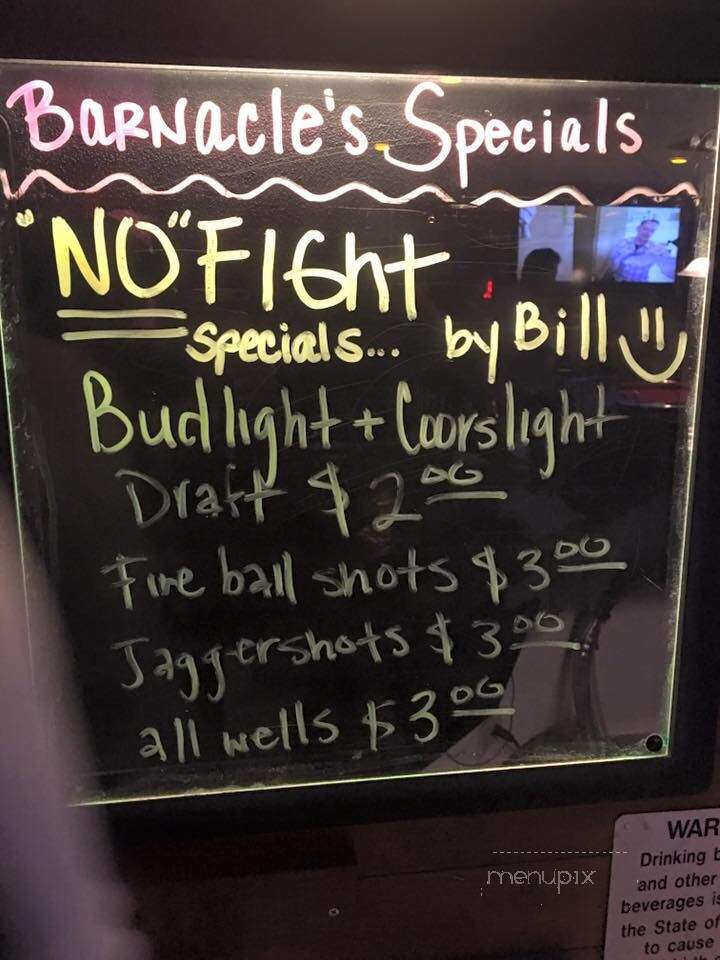 BARNacle's Specials
"NO" FIGht
specials... by Bill
Bud light + Coorslight
Draft $2.00
Fire ball shots $3.00
Jaggershots $3.00
all wells $3.00
WAR
Drinking
and other
beverages
the State of
to cause
menupix